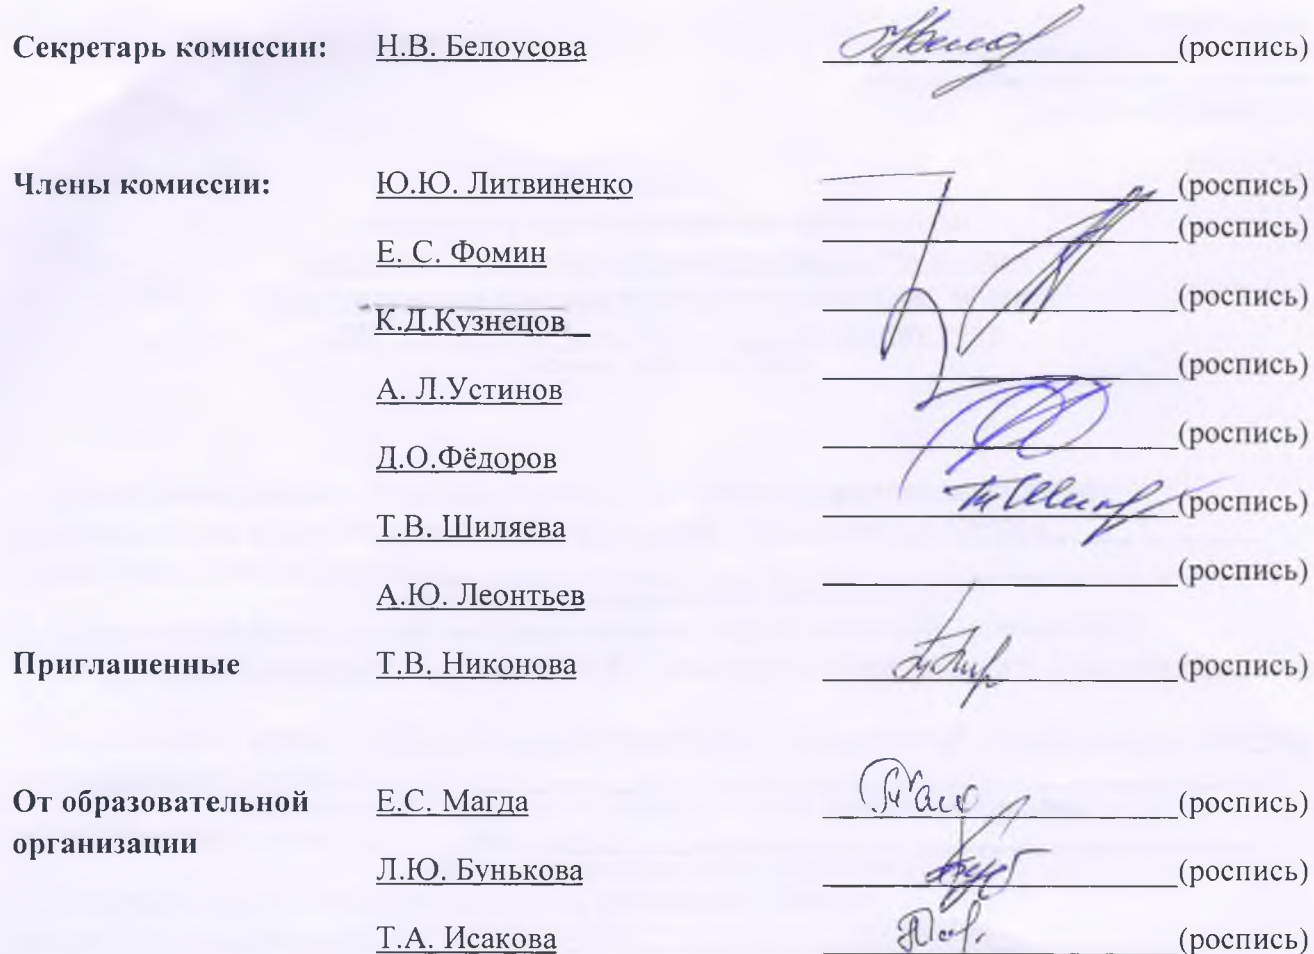 Секретарь комиссии: Н.В. Белоусова (роспись)
Члены комиссии: Ю.Ю. Литвиненко (роспись)
(роспись)
Е. С. Фомин
К.Д.Кузнецов (роспись)
А. Л.Устинов (роспись)
Д.О.Фёдоров (роспись)
Т.В. Шиляева (роспись)
А.Ю. Леонтьев (роспись)
Приглашенные Т.В. Никонова (роспись)
От образовательной Е.С. Магда (роспись)
организации
Л.Ю. Бунькова (роспись)
Т.А. Исакова (роспись)